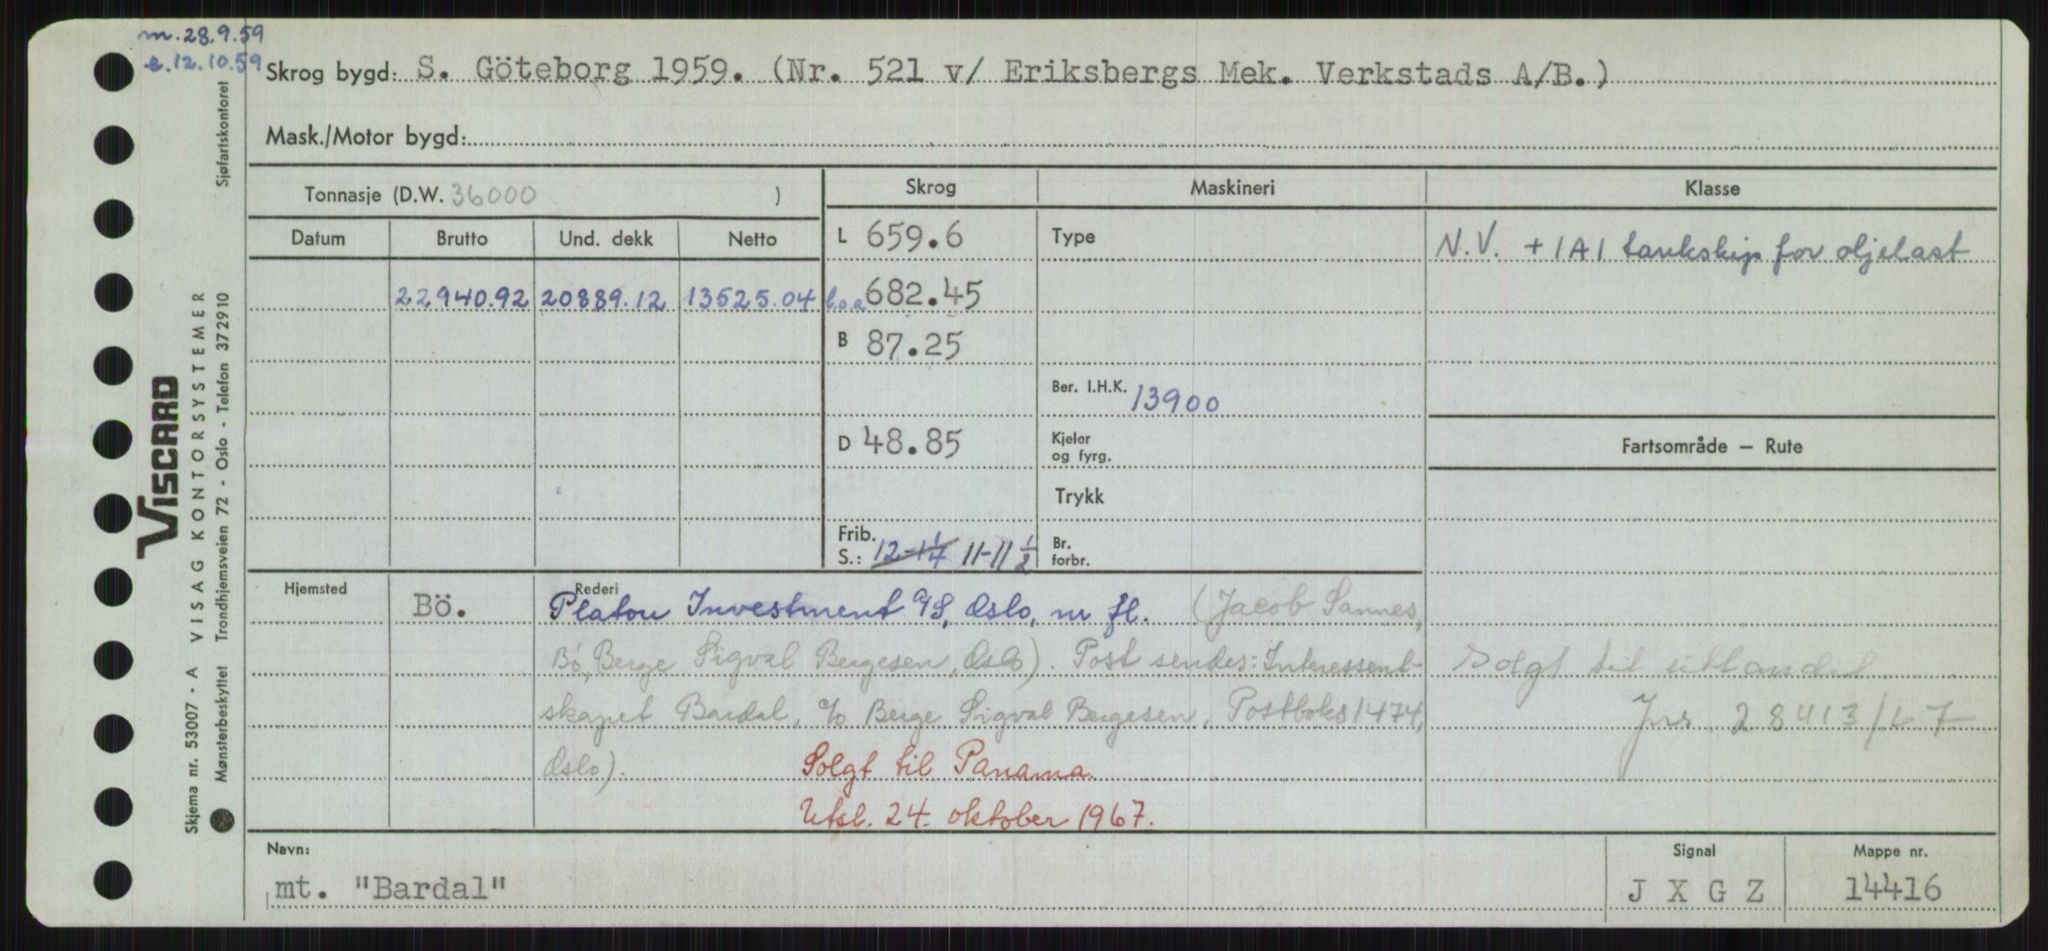 m. 28.9.59
e. 12.10.59
Skrog bygd: S. Göteborg 1959. (Nr. 521 v/ Eriksbergs Mek. Verkstads A/B.)
Mask./Motor bygd:
Tonnasje (D.W. 36000 )
Skrog
Maskineri
Klasse
Datum
Brutto
Und. dekk
Netto
L 659.6
Type
N.V. + 1A1 tankskip for oljelast
22940.92 20889.12 13525.04
l.o.a 682.45
B 87.25
Ber. I.H.K. 13900
D 48.85
Kjeler
og fyrg.
Fartsområde — Rute
Trykk
Frib.
S.: 12-1 1/4 11-11 1/2
Br.
forbr.
Hjemsted
Bö.
Rederi
Platou Investment A/S, Oslo, m fl. (Jacob Sannes,
Bö, Berge Sigval Bergesen, Oslo). Post sendes: Interessent-
skapet Bardal, c/o Berge Sigval Bergesen, Postboks 1474,
Oslo).
Solgt til Panama.
Utsl. 24. oktober 1967.
Solgt til utlandet
Jnr. 28413/67
Navn:
mt. "Bardal"
Signal
J X G Z
Mappe nr.
14416
Sjøfartskontoret
VISCARD
VISAG KONTORSYSTEMER
Skjema nr. 53007 - A
Mønsterbeskyttet Trondhjemsveien 72 - Oslo - Telefon 372910